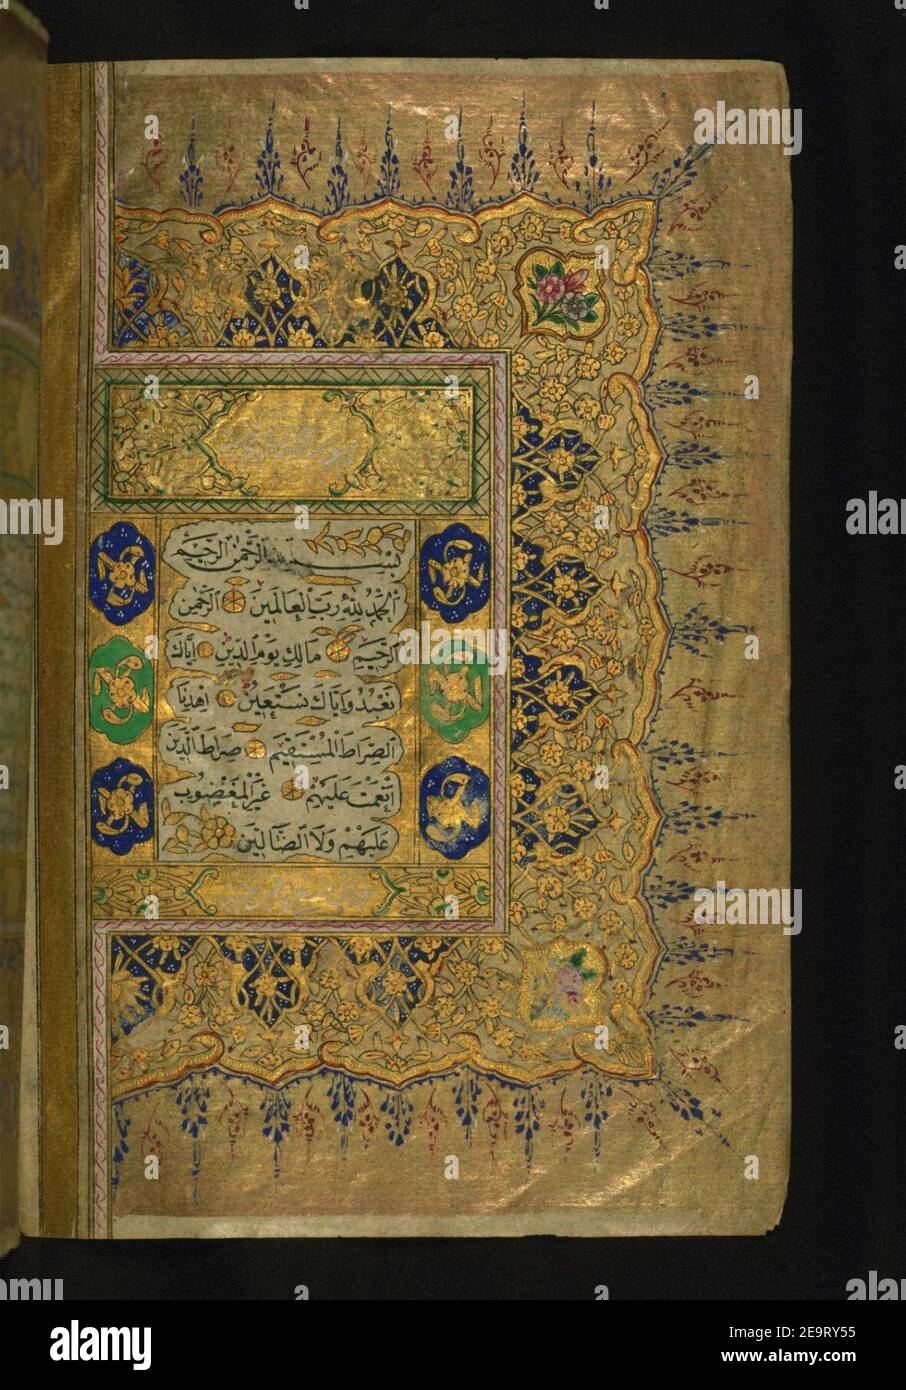 بِسْمِ الرَّحْمٰنِ الرَّحِيمِ
الْحَمْدُ لِلّٰهِ رَبِّ الْعَالَمِينَ الرَّحْمٰنِ
الرَّحِيمِ مَالِكِ يَوْمِ الدِّينِ اِيَّاكَ
نَعْبُدُ وَاِيَّاكَ نَسْتَعِينُ اِهْدِنَا
الصِّرَاطَ الْمُسْتَقِيمَ صِرَاطَ الَّذِينَ
اَنْعَمْتَ عَلَيْهِمْ غَيْرِ الْمَغْضُوبِ
عَلَيْهِمْ وَلَا الضَّالِّينَ
alamy
alamy
a
a
a
a
alamy
alamy
a
a
alamy
Image ID: 2E9RY55
www.alamy.com